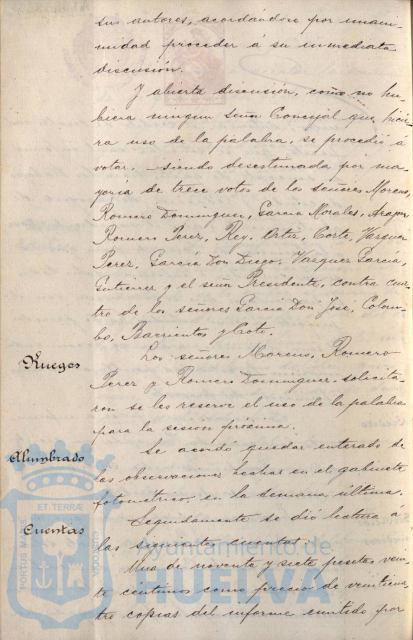 sus autores, acordándose por unani-
midad proceder á su inmediata
discusión.
Y abierta discusión, como no hu-
biera ningun Señor Concejal que hicie-
ra uso de la palabra, se procedió á
votar, siendo desestimada por ma-
yoria de trece votos de los señores Moreno,
Romero Dominguez, Garcia Morales, Aragon
Romero Perez, Rey, Ortiz, Corte, Vazquez
Perez, Garcia Don Diego, Vazquez Garcia,
Gutierrez y el señor Presidente, contra cua-
tro de los señores Garcia Don José, Colom-
bo, Barrientos y Coto.
Ruegos
Los señores Moreno, Romero
Perez y Romero Dominguez solicita-
ron se les reserve el uso de la palabra
para la sesión próxima.
Alumbrado
Se acordó quedar enterado de
las observaciones hechas en el gabinete
fotométrico, en la semana última.
Cuentas
Seguidamente se dió lectura á
las siguientes cuentas:
Una de noventa y siete pesetas vein-
te centimos como precio de veinticua-
tro copias del informe emitido por
PORTUS MARIS
ET TERRAE
CUSTODIA
Ayuntamiento de
HUELVA